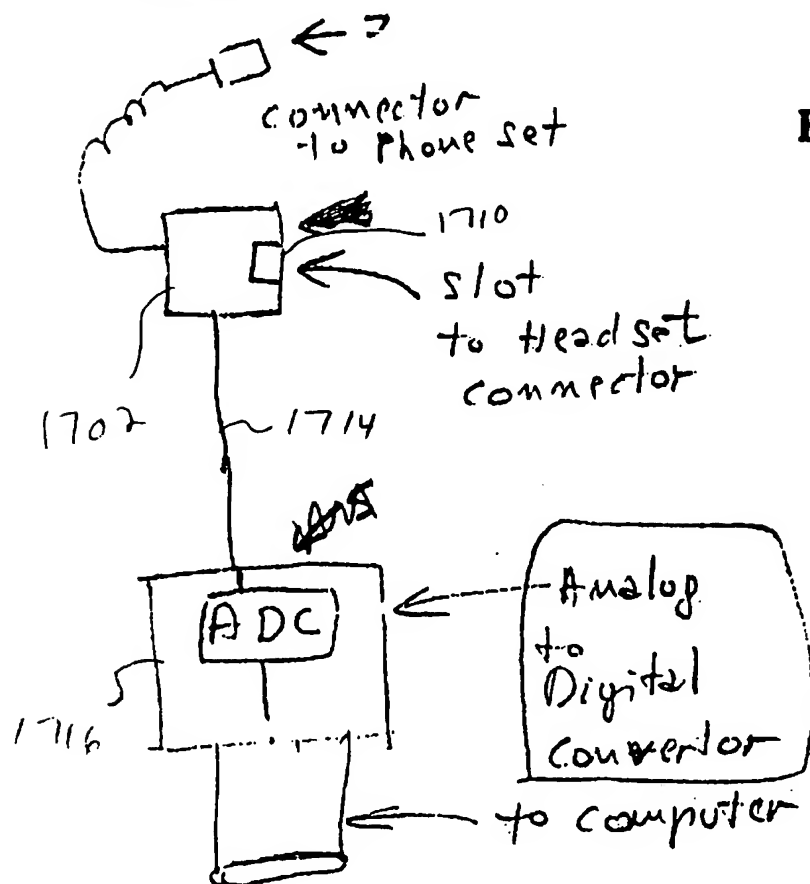 ?
connector
to Phone set
1710
Slot
to Headset
connector
1702
1714
ADC
Analog
to
Digital
Convertor
1716
to computer